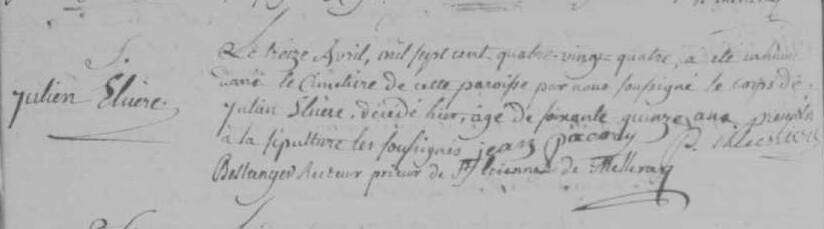 S.
julien Eluere.
Le treize Avril, mil sept cent quatre-vingt quatre, a eté inhumé
dans le Cimetiere de cette paroisse par nous soussigné le corps de
julien Eluere, decedé hier, agé de soixante quinze ans presents
à la sepulture les soussignés jean pacory
Bellanger Recteur prieur de St Etienne de